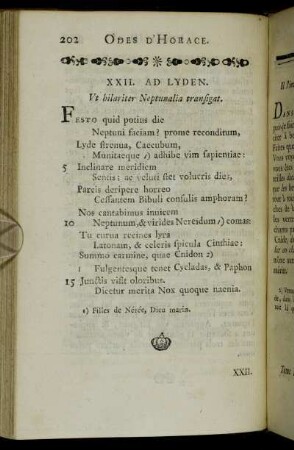 202 ODES D'HORACE.
XXII. AD LYDEN.
Vt hilariter Neptunalia transigat.
FESTO quid potius die
Neptuni faciam? prome reconditum,
Lyde strenua, Caecubum,
Munitaeque 1) adhibe vim sapientiae:
5 Inclinare meridiem
Sentis: ac veluti stet volucris dies,
Parcis deripere horreo
Cessantem Bibuli consulis amphoram?
Nos cantabimus inuicem
10 Neptunum, & virides Nereidum 1) comas:
Tu curua recines lyra
Latonam, & celeris spicula Cinthiae:
Summo carmine, quae Cnidon 2)
Fulgentesque tenet Cycladas, & Paphon
15 Junctis visit oloribus.
Dicetur merita Nox quoque naenia.
1) Filles de Nérée, Dieu marin.
XXII.